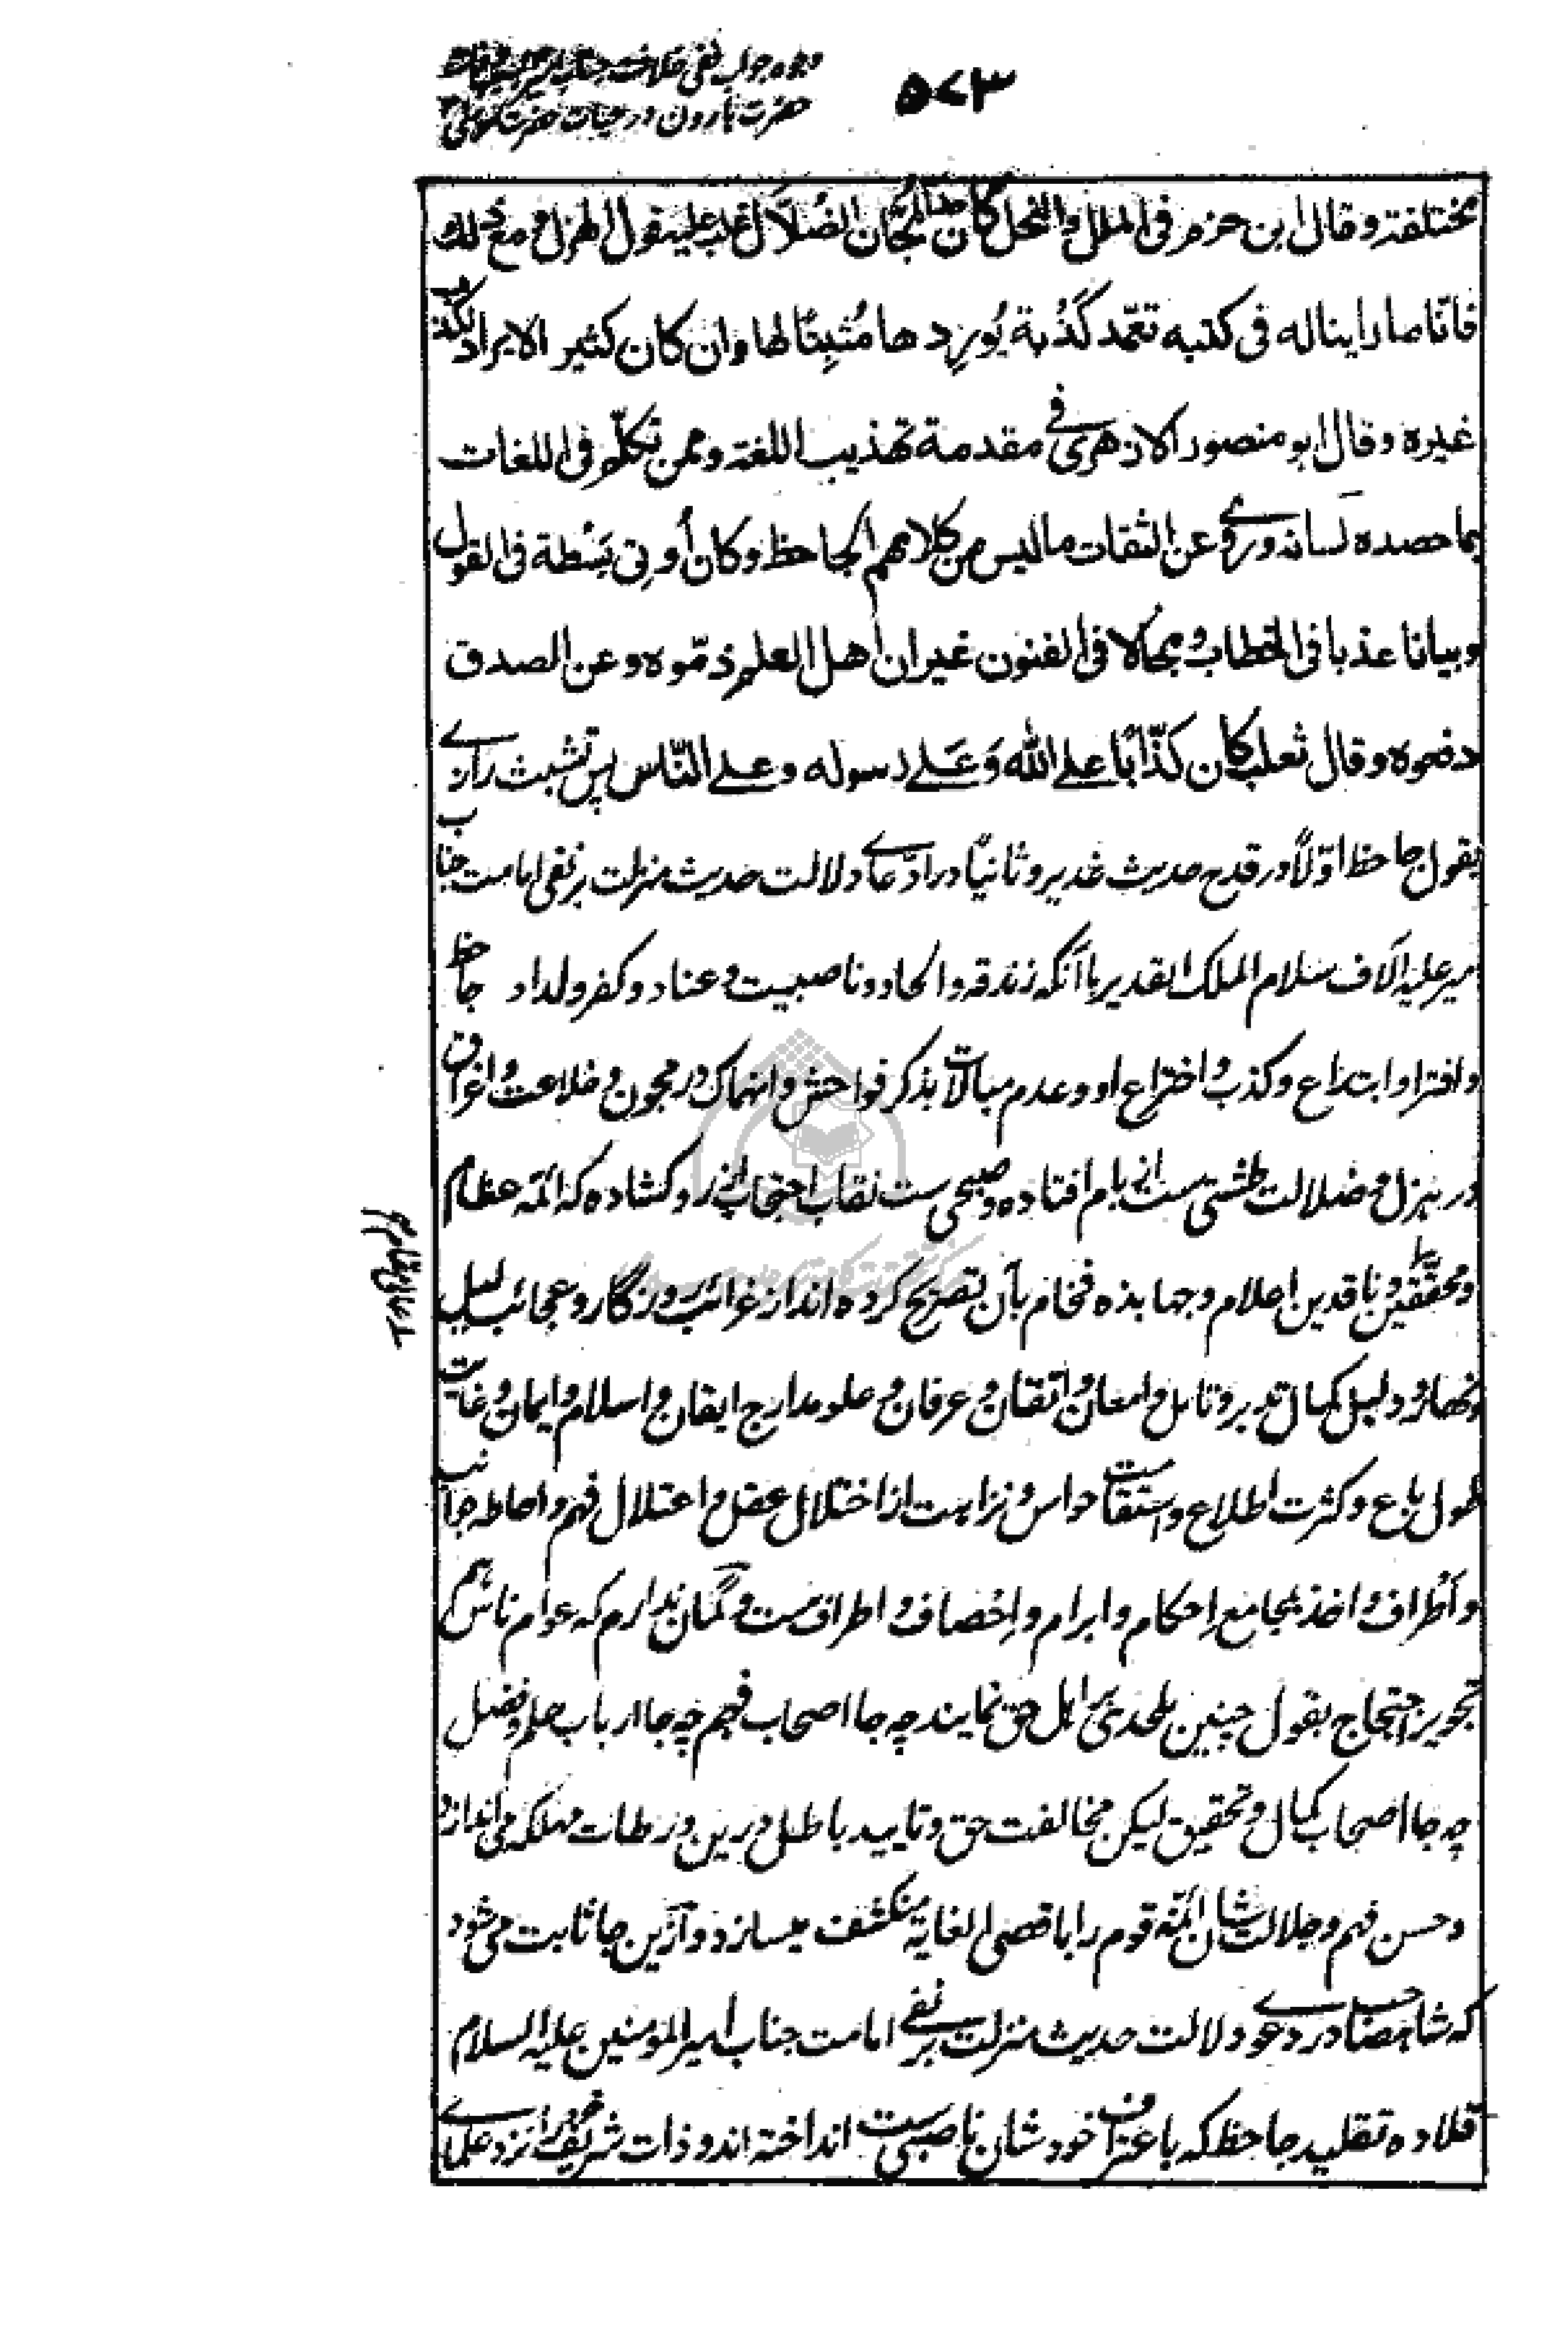 وجوه جواب نفی خلافت جناب امیر
۵۷۳
حضرت هارون در حیات حضرت موسی
مختلفة وقال ابن حزم فی الملل والنحل کان احد المجان الضُلاّل غلب علیه قول الهزل ومع ذلک
فانّا ما راینا له فی کتبه تعمّد کَذُبة یُورِدها مُثبِتًا لها وان کان کثیر الایراد لکذب
غیره وقال ابو منصور الازهری فی مقدمة تهذیب اللغة وممن تکلّم فی اللغات
بما حصده لسانه وروی عن الثقات ما لیس من کلامهم الجاحظ وکان أوتی بَسْطة فی القول
وبیانا عذبا فی الخطاب ومجالا فی الفنون غیر ان اهل العلم ذمّوه وعن الصدق
دفعوه وقال ثعلب کان کذّابًا علی الله وَعَلی رسوله وعلی النّاس پس تشبث رازی
بقول جاحظ اوّلاً در قدح حدیث غدیر وثانیًا در ادّعای دلالت حدیث منزلت بر نفی امامت جناب
میر علیه آلاف سلام الملک القدیر با آنکه زندقه والحاد وناصبیت وعناد وکفر ولداد جاحظ
وافترا وابتداع وکذب واختراع او وعدم مبالات بذکر فواحش وانهماک در مجون وخلاعت واغراق
در هزل وضلالت طشتی ست از بام افتاده وصبحی ست نقاب احتجاب از رو کشاده که ائمه عظام
ومحققین وناقدین اعلام وجهابذه فخام بآن تصریح کرده اند از غرائب روزگار وعجائب لیل
ونهار ودلیل کمال تدبر وتامل وامعان واتقان وعرفان وعلو مدارج ایقان واسلام وایمان وغایت
طول باع وکثرت اطلاع واستقامت حواس ونزاهت از اختلال عقل واعتلال فهم واحاطه جوانب
واَطْراف واخذ بمجامع اِحکام وابرام واِخصاف واطراف ست وگمان ندارم که عوام ناس هم
تجویز احتجاج بقول چنین ملحدی بر اهل حق نمایند چه جا اصحاب فهم چه جا ارباب علم وفضل
چه جا اصحاب کمال وتحقیق لیکن مخالفت حق وتایید باطل درین ورطات مهلکه می اندازد
وحسن فهم وجلالت شان ائمّه قوم را باقصی الغایه منکشف میسازد وازین جا ثابت می شود
که شاهصاحب در دعوی دلالت حدیث منزلت بر نفی امامت جناب امیر المؤمنین علیه السلام
قلاده تقلید جاحظ که باعتراف خودشان ناصبی ست انداخته اند وذات شریف را نزد علمای